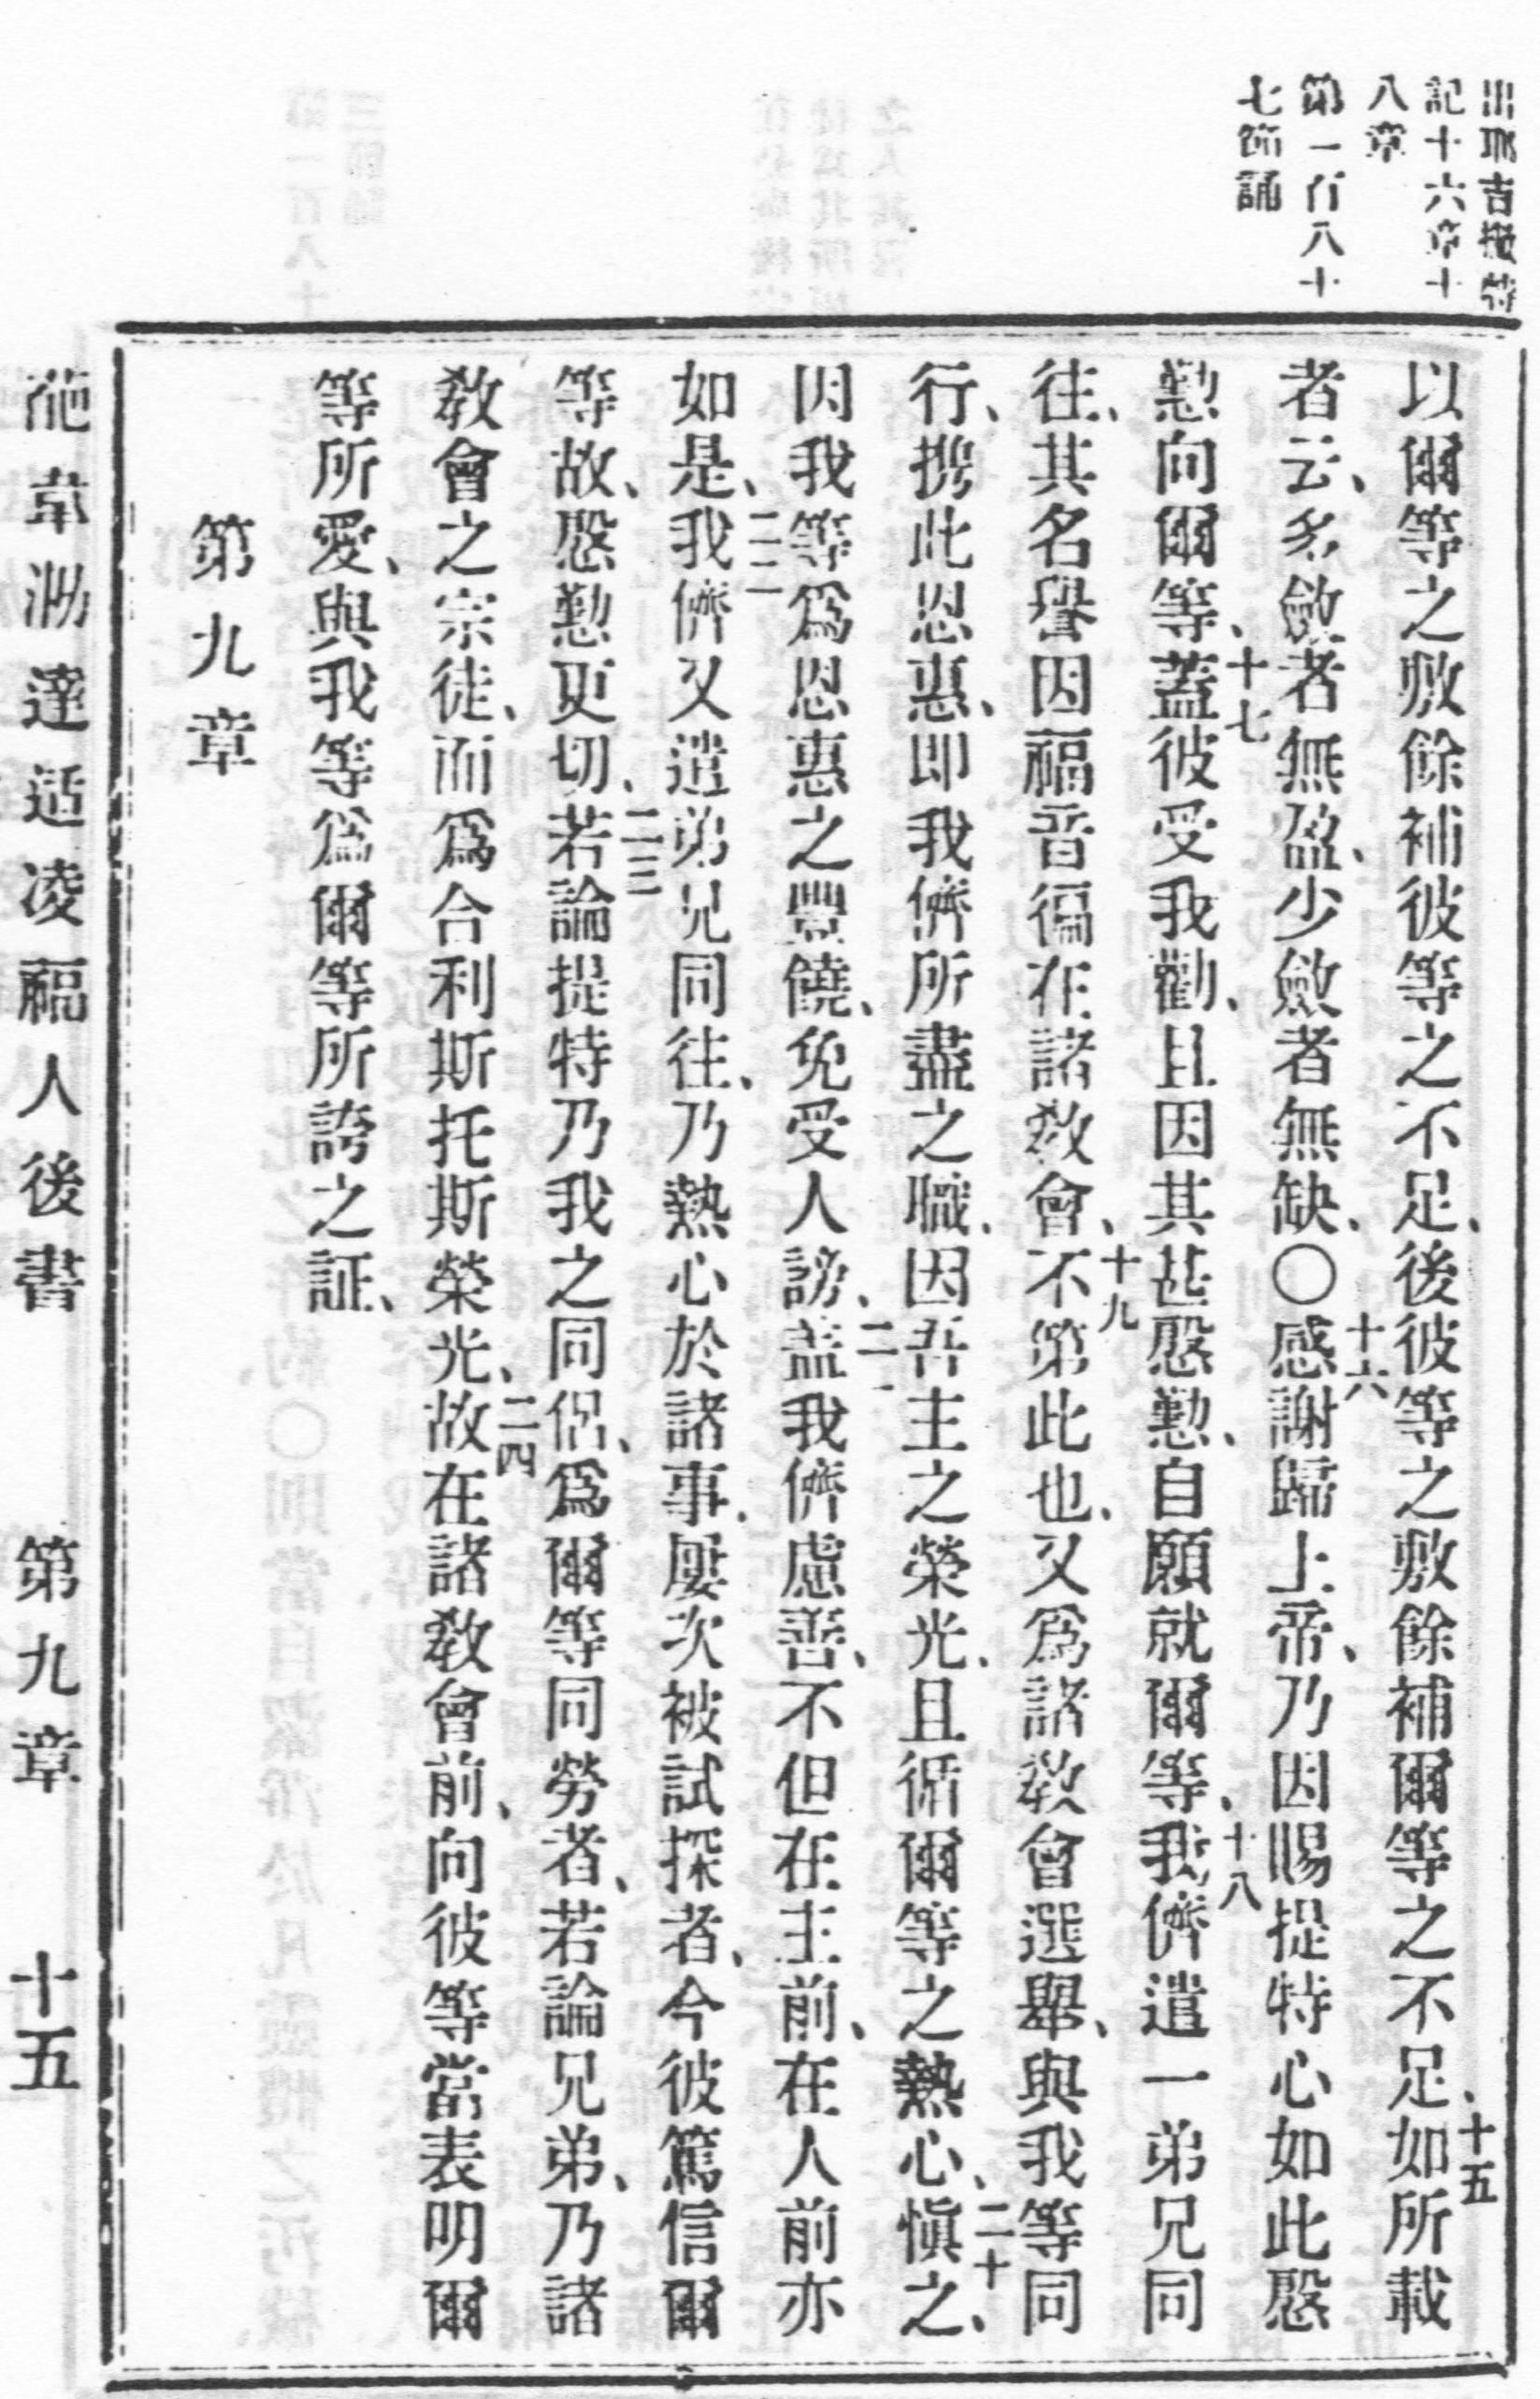 出耶吉撒特
記十六章十
八章
第一百八十
七節誦
以爾等之敷餘補彼等之不足、後彼等之敷餘補爾等之不足、十五如所載
者云、多斂者無盈、少斂者無缺、〇十六感謝歸上帝、乃因賜提特心如此慇
懃向爾等、十七蓋彼受我勸、且因其甚慇懃、自願就爾等、十八我儕遣一弟兄同
往、其名譽因福音徧在諸教會、十九不第此也、又爲諸教會選舉、與我等同
行、攜此恩惠、即我儕所盡之職、因吾主之榮光、且循爾等之熱心、二十愼之、
因我等爲恩惠之豐饒、免受人謗、二一蓋我儕慮善、不但在主前、在人前亦
如是、二二我儕又遣弟兄同往、乃熱心於諸事、屢次被試探者、今彼篤信爾
等故、慇懃更切、二三若論提特乃我之同侶、爲爾等同勞者、若論兄弟、乃諸
教會之宗徒、而爲合利斯托斯榮光、二四故在諸教會前、向彼等當表明爾
等所愛、與我等爲爾等所誇之証、
第九章
達适凌福人後書 第九章 十五